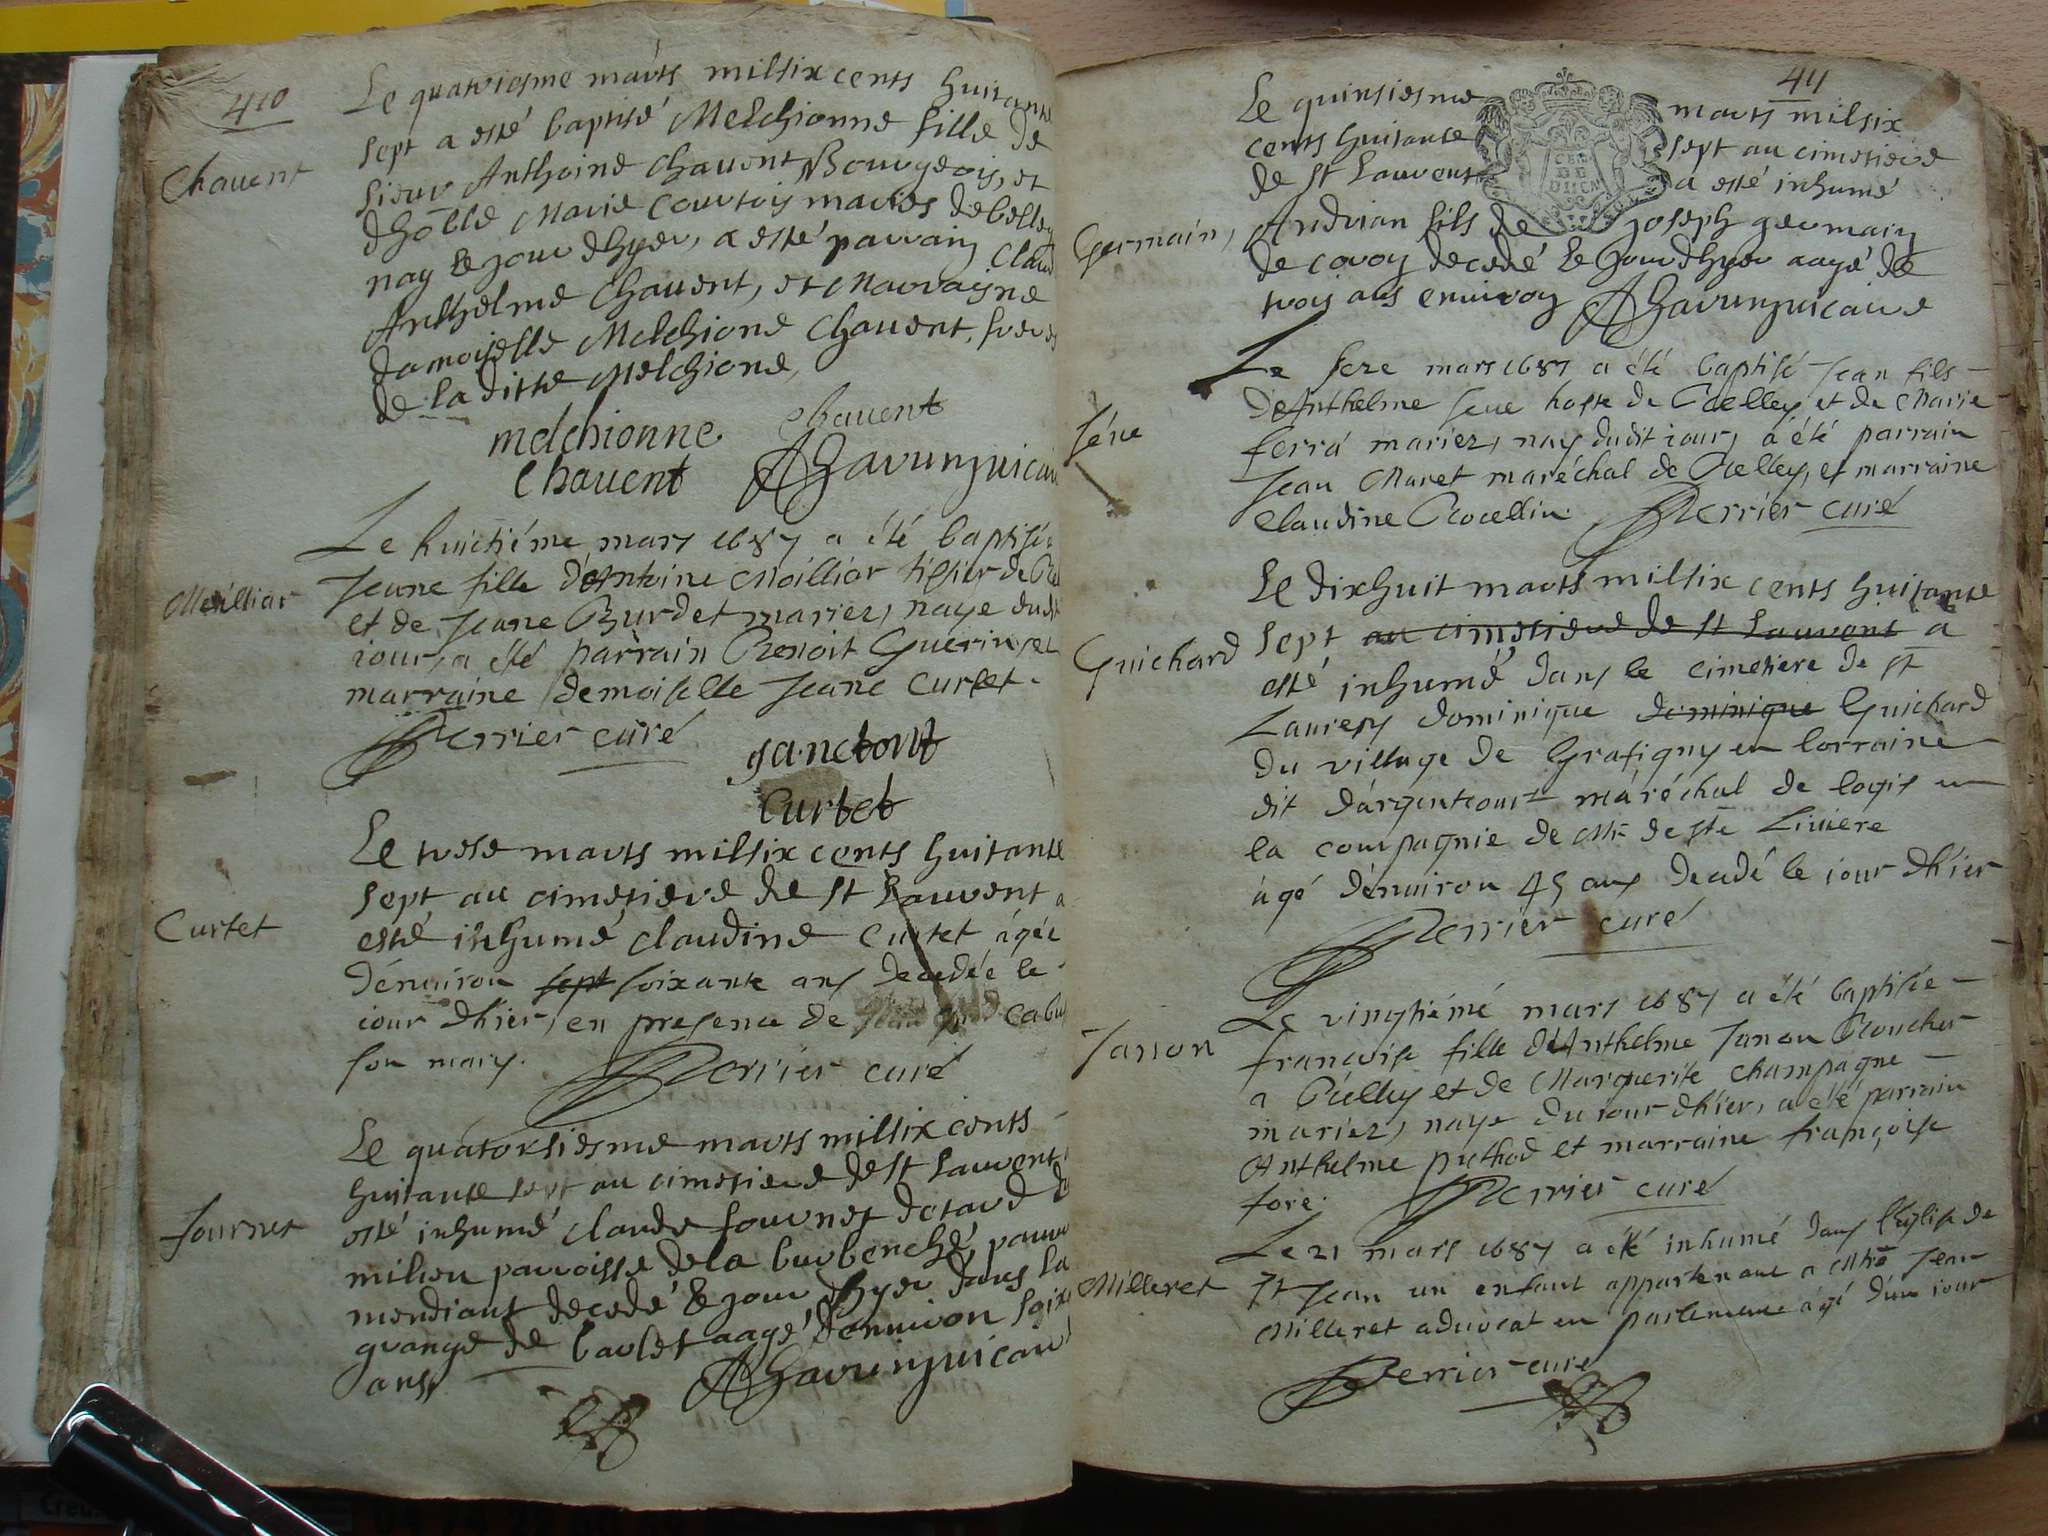 410
Chavent
Le quatriesme mars mil six cents huitante
sept a esté baptisé Melchionne fille de
sieur Anthoine Chavent Bourgeois, et
dhõlle Marie Courtois mariés de belley
nay le jour dhyer, a esté parrain Claud
Anthelme Chavent, et Marrayne
damoiselle Melchione Chavent,
de la ditte Melchione,
melchionne chavent
Chavent
vicaire
Meilliar
Le huictiéme mars 1687 a été baptisée
Jeane fille d'Antoine Meilliar tissier de
et de Jeane Burdet mariez, naye dudit
iour, a été parrain Benoit Guerin, et
marraine demoiselle Jeane Curtet.
Perrier curé
Curtet
Curtet
Le trese mars mil six cents huitante
sept au cimetiere de St Laurent a
esté inhumé claudine Curtet âgée
dénuiron sept soixante ans decedée le
iour dhier, en presence de
son mary.
Perrier curé
fournet
Le quatorsiesme mars mil six cents
huitante sept au cimetiere de St Laurent
esté inhumé claude fournet
milieu parroisse de la burbenche, pauvre
mendiant decedé le jour dhyer dans la
grange de barlet aagé denuiron
ans
vicaire
411
Germain,
Le quinsiesme mars mil six
cents huitante sept au cimetiere
de St Laurent a esté inhumé
Andrian fils de Joseph germain
de coron decedé le jour dhyer aagé de
trois ans enuiron
vicaire
Séne
Le seze mars 1687 a été baptisé Jean fils
de Anthelme Sene hoste de Belley et de Marie
ferrá mariez, nay dudit iour, a été parrain
Jean Maret maréchal de Belley, et marraine
Claudine
Perrier curé
Guichard
Le dixhuit mars mil six cents huitante
sept au cimetiere de St Laurent a
esté inhumé dans le cimetiere de St
Laurens dominique dominique Guichard
du village de Grafigny en lorraine
dit d'argentcourt maréchal de logis en
la compagnie de Mr de Ste Liuiere
âgé dénuiron 45 ans decedé le iour dhier
Perrier curé
Janon
Le vingtiémé mars 1687 a été baptisée
françoise fille d'Anthelme Janon Boucher
a Belley et de Marguerite champagne
mariez, naye du iour dhier, a été parrain
Anthelme puthod et marraine françoise
fore.
Perrier curé
Milleret
Le 21 mars 1687 a été inhumé dans l'église de
St Jean un enfant appartenant a Mre Jean
Milleret aduocat en parlement âgé d'un iour
Perrier curé